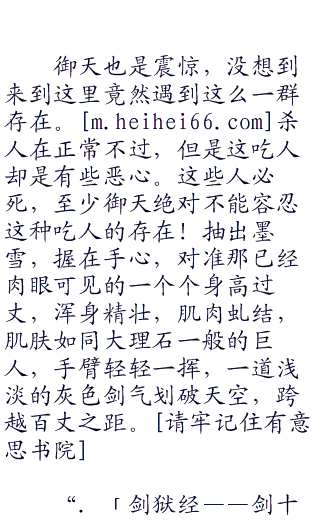 御天也是震惊，没想到
来到这里竟然遇到这么一群
存在。[m.heihei66.com]杀
人在正常不过，但是这吃人
却是有些恶心。这些人必
死，至少御天绝对不能容忍
这种吃人的存在！抽出墨
雪，握在手心，对准那已经
肉眼可见的一个个身高过
丈，浑身精壮，肌肉虬结，
肌肤如同大理石一般的巨
人，手臂轻轻一挥，一道浅
淡的灰色剑气划破天空，跨
越百丈之距。[请牢记住有意
思书院]
“．「剑狱经——剑十